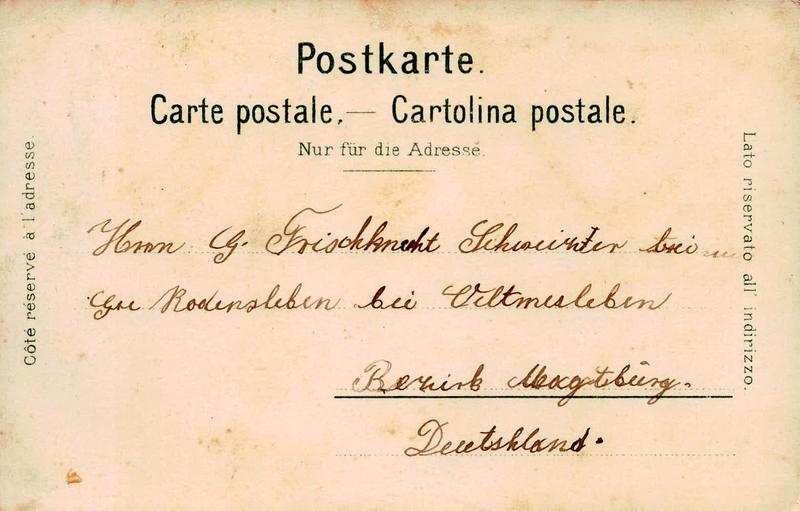 Postkarte.
Carte postale. — Cartolina postale.
Nur für die Adresse.
Côté réservé à l'adresse.
Lato riservato all' indirizzo.
Herrn G. Frischknecht Schweizer bei
Gre Rodensleben bei Veltmesleben
Bezirk Magteburg.
Deutshland.